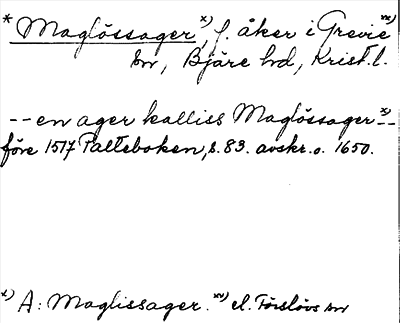 * Maglössager x), f. åker i Grevie xx)
sn, Bjäre hd, Krist. l.
-- en ager kalliss Maglössager x) --
före 1517 Palteboken, s. 83. avskr. o. 1650.
x) A: Maglissager. xx) el. Förslövs sn